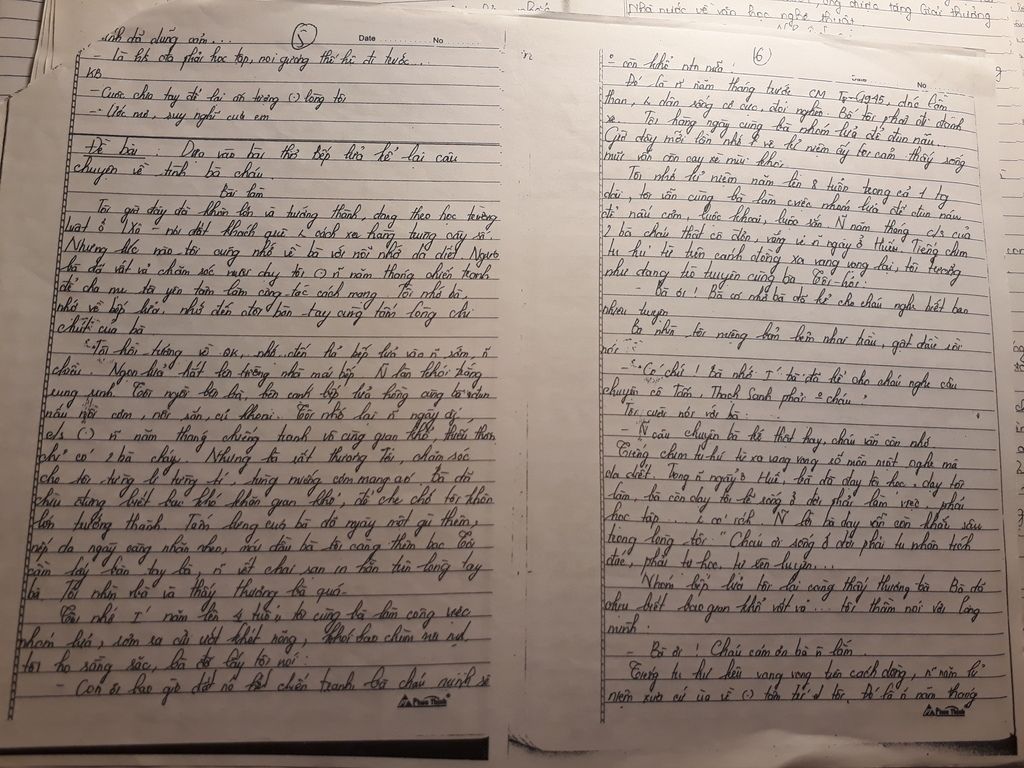 Nhà nước về văn học nghệ thuật
5
Date No
- là hs cta phải học tập, noi gương thế hệ đi trước...
KB
- Cuộc chia tay để lại ấn tượng (-) lòng tôi
- Ước mơ, suy nghĩ của em
Đề bài: Dựa vào bài thơ bếp lửa kể lại câu
chuyện về tình bà cháu.
Bài làm
Tôi giờ đây đã khôn lớn và trưởng thành, đang theo học trường
luật ở LXô - nơi đất khách quê
Nhưng lúc nào tôi cũng nhớ về bà với nỗi nhớ da diết. Người
bà đã vất vả chăm sóc nuôi dạy tôi (-) n~ năm tháng chiến tranh
để cha mẹ tôi yên tâm làm công tác cách mạng. Tôi nhớ bà,
nhớ về bếp lửa, nhớ đến đôi bàn tay cùng tấm lòng chi
chút của bà
Tôi hồi tưởng về qk, nhớ đến bếp lửa vào n~ sớm, n~
chiều. Ngọn lửa thắt lên trong nhà mái bếp. N~ làn khói trắng
xung quanh. Tôi ngồi bên bà, bên cạnh bếp lửa hồng cùng bà đun
nấu nồi cơm, nồi sắn, củ khoai. Tôi nhớ lại n~ ngày ấy
c/s (-) n~ năm tháng chiếng tranh vô cùng gian khổ, thiếu thốn
chỉ có 2 bà cháy. Nhưng bà rất thương Tôi, chăm sóc
cho tôi từng li từng tí, từng miếng cơm mang áo. Bà đã
chịu đựng biết bao khó khăn gian khó, để che chở tôi khôn
lớn trưởng thành. Tấm lưng của bà đã ngày một gù thêm,
nếp da ngày càng nhăn nheo, mái đầu bà tôi càng thêm bạc. Tôi
cầm lấy bàn tay bà, n~ vết chai sạn in hằn trên lòng tay
bà. Tôi nhìn bà và thấy thương bà quá.
Tôi nhớ I' năm lên 4 tuổi, tôi cùng bà làm công việc
nhóm lửa, sớm ra củi ướt khét nồng, khói bao chùm
tôi ho sằng sặc, bà đỡ lấy tôi nói:
- Con ơi bao giờ đất nc hết chiến tranh, bà cháu mình sẽ
Phúc Thịnh
6
No
Đó là n~ năm tháng trước CM T8-1945, đnc lầm
than, dân sống cơ cực, đói nghèo. Bố tôi phải đi đánh
xe. Tôi hàng ngày cùng bà nhóm lửa để đun nấu...
Giờ đây mỗi lần nhớ về kỉ niệm ấy tôi cảm thấy sống
mũi vẫn còn cay xè mùi khói.
Tôi nhớ kỉ niệm năm lên 8 tuổi trong cả 1 tg
dài, tôi vẫn cùng bà làm việc nhóm lửa để đun nấu
để nấu cơm, luộc khoai, luộc sắn. N~ năm tháng c/s của
2 bà cháu thật cô đơn, vắng vẻ n~ ngày ở Huế. Tiếng chim
tu hú từ trên cánh đồng xa vang vọng lại, tôi tưởng
như đang trò truyện cùng bà. Tôi hỏi:
- Bà ơi! Bà có nhớ bà đã kể cho cháu nghe biết bao
nhiêu truyện.
Bà nhìn tôi miệng bỏm bẻm nhai trầu, gật đầu rồi
nói
- Có chứ! Bà nhớ I' bà đã kể cho cháu nghe câu
chuyện cô Tấm, Thạch Sanh phải 0 cháu.
Tôi cười nói với bà:
- N~ câu chuyện bà kể thật hay, cháu vẫn còn nhớ
Tiếng chim tu hú từ xa vang vọng về mồn một nghe mà
da diết. Trong n~ ngày ở Huế, bà đã dạy tôi học, dạy tôi
làm, bà còn dạy tôi lẽ sống ở đời phải làm việc, phải
học tập ... có ích. N~ lời bà dạy vẫn còn khắc sâu
trong lòng tôi: "Cháu ơi sống ở đời phải tu nhân tích
đức, phải tự học, tự rèn luyện...
Nhóm bếp lửa tôi lại càng thấy thương bà. Bà đã
chịu biết bao gian khổ vất vả... tôi thầm nói với lòng
mình.
- Bà ơi! Cháu cảm ơn bà n~ lắm
Tiếng tu hú kêu vang vọng trên cách đồng, n~ năm kỉ
niệm xưa cứ ùa về (-) tâm trí of tôi, đó là n~ năm tháng
Phúc Thịnh